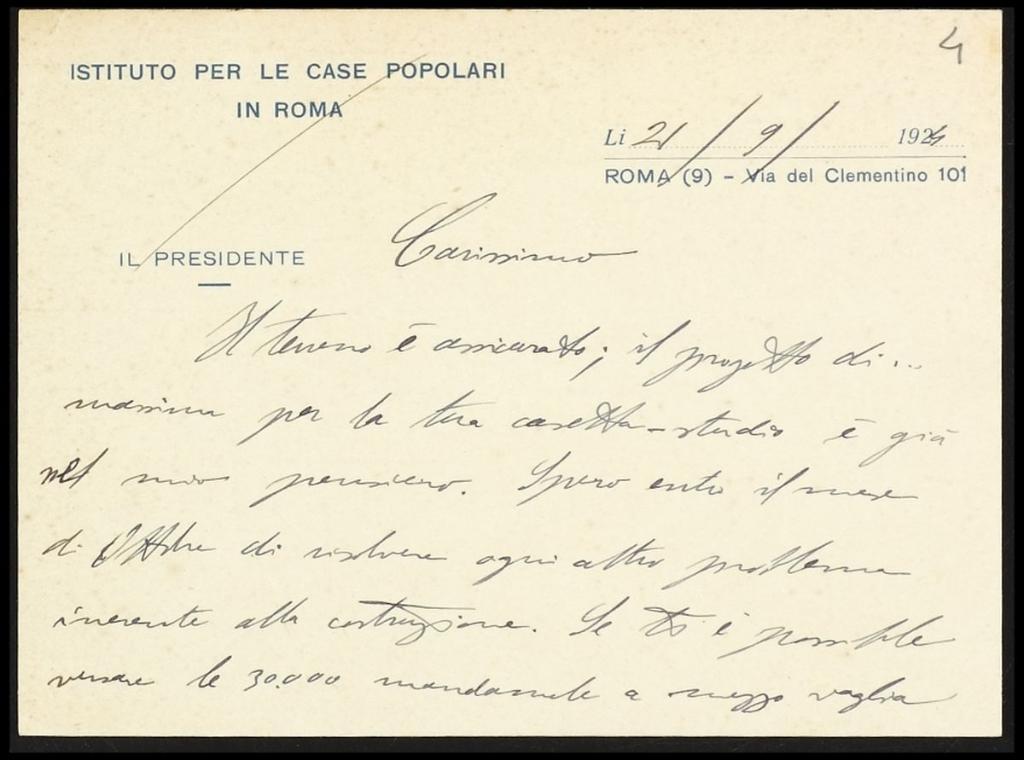 4
ISTITUTO PER LE CASE POPOLARI
IN ROMA
Li 21/9/ 1924
ROMA (9) - Via del Clementino 101
IL PRESIDENTE
Carissimo
Il terreno è assicurato; il progetto di...
massima per la tua casetta-studio è già
nel mio pensiero. Spero entro il mese
di Ottobre di risolvere ogni altro problema
inerente alla costruzione. Se ti è possibile
versare le 30.000 mandamele a mezzo vaglia